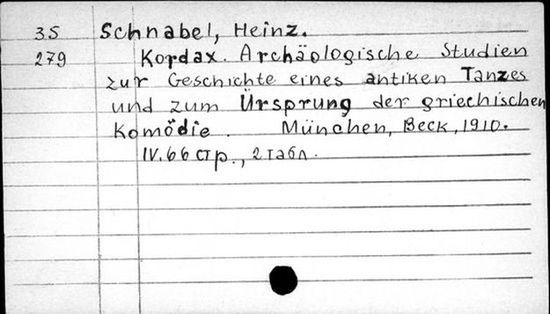 35 Schnabel, Heinz.
279 Kordax. Archäologische Studien
zur Geschichte eines antiken Tanzes
und zum Ürsprung der griechischen
Komödie. München, Beck, 1910.
IV. 66 стр., 2 табл.